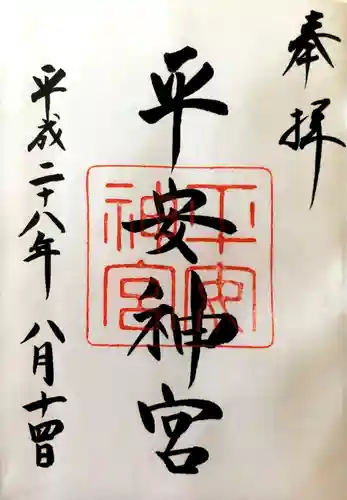 奉拝
平安神宮
平安神宮
平成二十八年 八月十四日